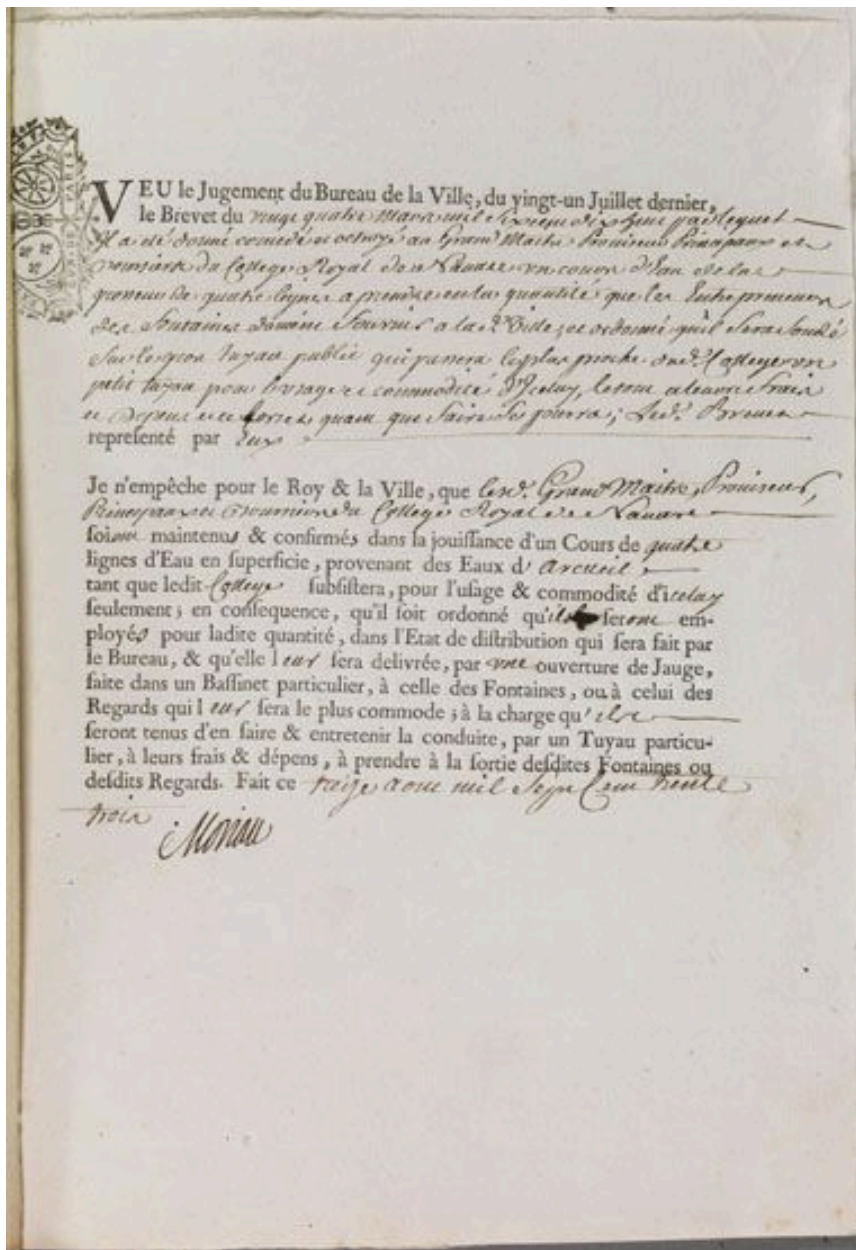 VEU le Jugement du Bureau de la Ville, du vingt-un Juillet dernier,
le Brevet du vingt quatre Mars mil six cens dix huit par lequel
Il a été donné concedé et octroyé au Grand Maitre Proviseur Principaux et
Boursiers du College Royal de Navarre un cours d'Eau de la
grosseur de quatre lignes a prendre en la quantité que les Entrepreneurs
des fontaines doivent fournir a la d. Ville, et ordonné qu'il sera soudé
sur le gros tuyau public qui passera le plus proche dud. College un
petit tuyau pour l'usage et commodité d'Iceluy, le tout a leurs frais
et depens et de forme quam que faire se pourra; Led. Brevet
representé par Eux
Je n'empêche pour le Roy & la Ville, que lesd. Grand Maitre, Proviseur,
Principaux et Boursiers du College Royal de Navarre
soient maintenus & confirmés dans la jouissance d'un Cours de quatre
lignes d'Eau en superficie, provenant des Eaux d'Arcueil
tant que ledit College subsistera, pour l'usage & commodité d'icelay
seulement; en consequence, qu'il soit ordonné qu'ils seront em-
ployés pour ladite quantité, dans l'Etat de distribution qui sera fait par
le Bureau, & qu'elle leur sera delivrée, par une ouverture de Jauge,
faite dans un Bassinet particulier, à celle des Fontaines, ou à celui des
Regards qui leur sera le plus commode; à la charge qu'ils
seront tenus d'en faire & entretenir la conduite, par un Tuyau particu-
lier, à leurs frais & dépens, à prendre à la sortie desdites Fontaines ou
desdits Regards. Fait ce treize aout mil sept Cent trente
trois
Moriau